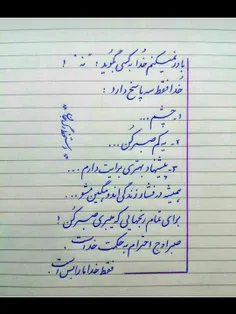 باور نمیکنم خدا به کسی بگوید : " نه " !
خدا فقط سه پاسخ دارد :
۱- چشم ...
۲- یه کم صبر کن ...
۳- پیشنهاد بهتری برایت دارم ...
همیشه در فشار زندگی اندوهگین مشو ...
برای تمام رنجهایی که میبری صبر کن !
صبر اوج احترام به حکمت خداست .
فقط خدا ما را بس است .